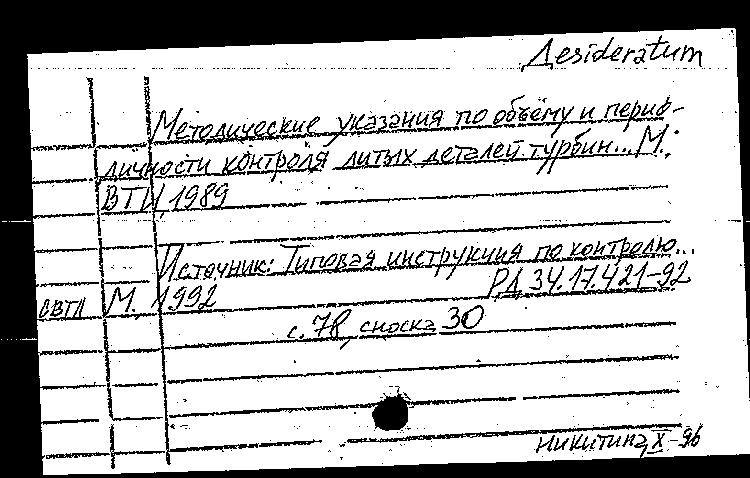 Desideratum
Методические указания по объёму и перио-
дичности контроля литых деталей турбин... М.:
ВТИ, 1989
Источник: Типовая инструкция по контролю...
М., 1992 РД 34.17.421-92
с. 78, сноска 30
Никитина, X-96